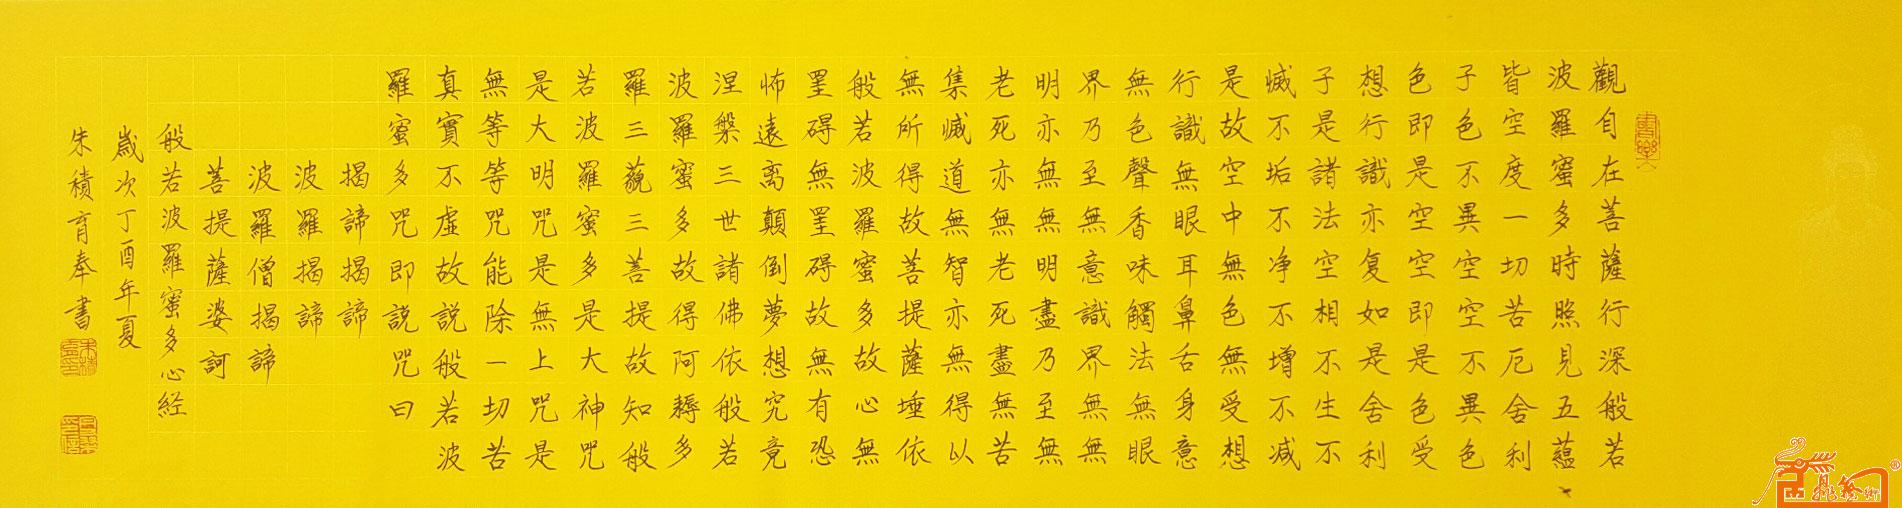 觀自在菩薩行深般若
波羅蜜多時照見五蘊
皆空度一切苦厄舍利
子色不異空空不異色
色即是空空即是色受
想行識亦复如是舍利
子是諸法空相不生不
滅不垢不净不增不减
是故空中無色無受想
行識無眼耳鼻舌身意
無色聲香味觸法無眼
界乃至無意識界無無
明亦無無明盡乃至無
老死亦無老死盡無苦
集滅道無智亦無得以
無所得故菩提薩埵依
般若波羅蜜多故心無
罣碍無罣碍故無有恐
怖遠离顛倒夢想究竟
涅槃三世諸佛依般若
波羅蜜多故得阿耨多
羅三藐三菩提故知般
若波羅蜜多是大神咒
是大明咒是無上咒是
無等等咒能除一切苦
真實不虛故説般若波
羅蜜多咒即説咒曰
揭諦揭諦
波羅揭諦
波羅僧揭諦
菩提薩婆訶
般若波羅蜜多心経
歲次丁酉年夏
朱積育奉書